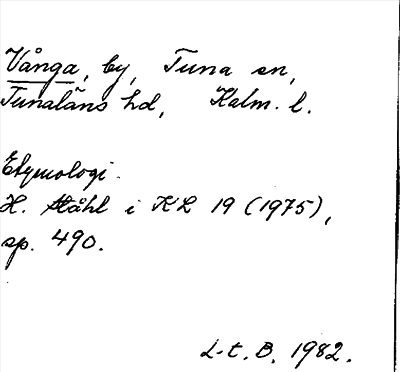 Vånga, by, Tuna sn,
Tunaläns hd, Kalm. l.
Etymologi.
H. Ståhl i KL 19 (1975),
sp. 490.
L-t. B. 1982.